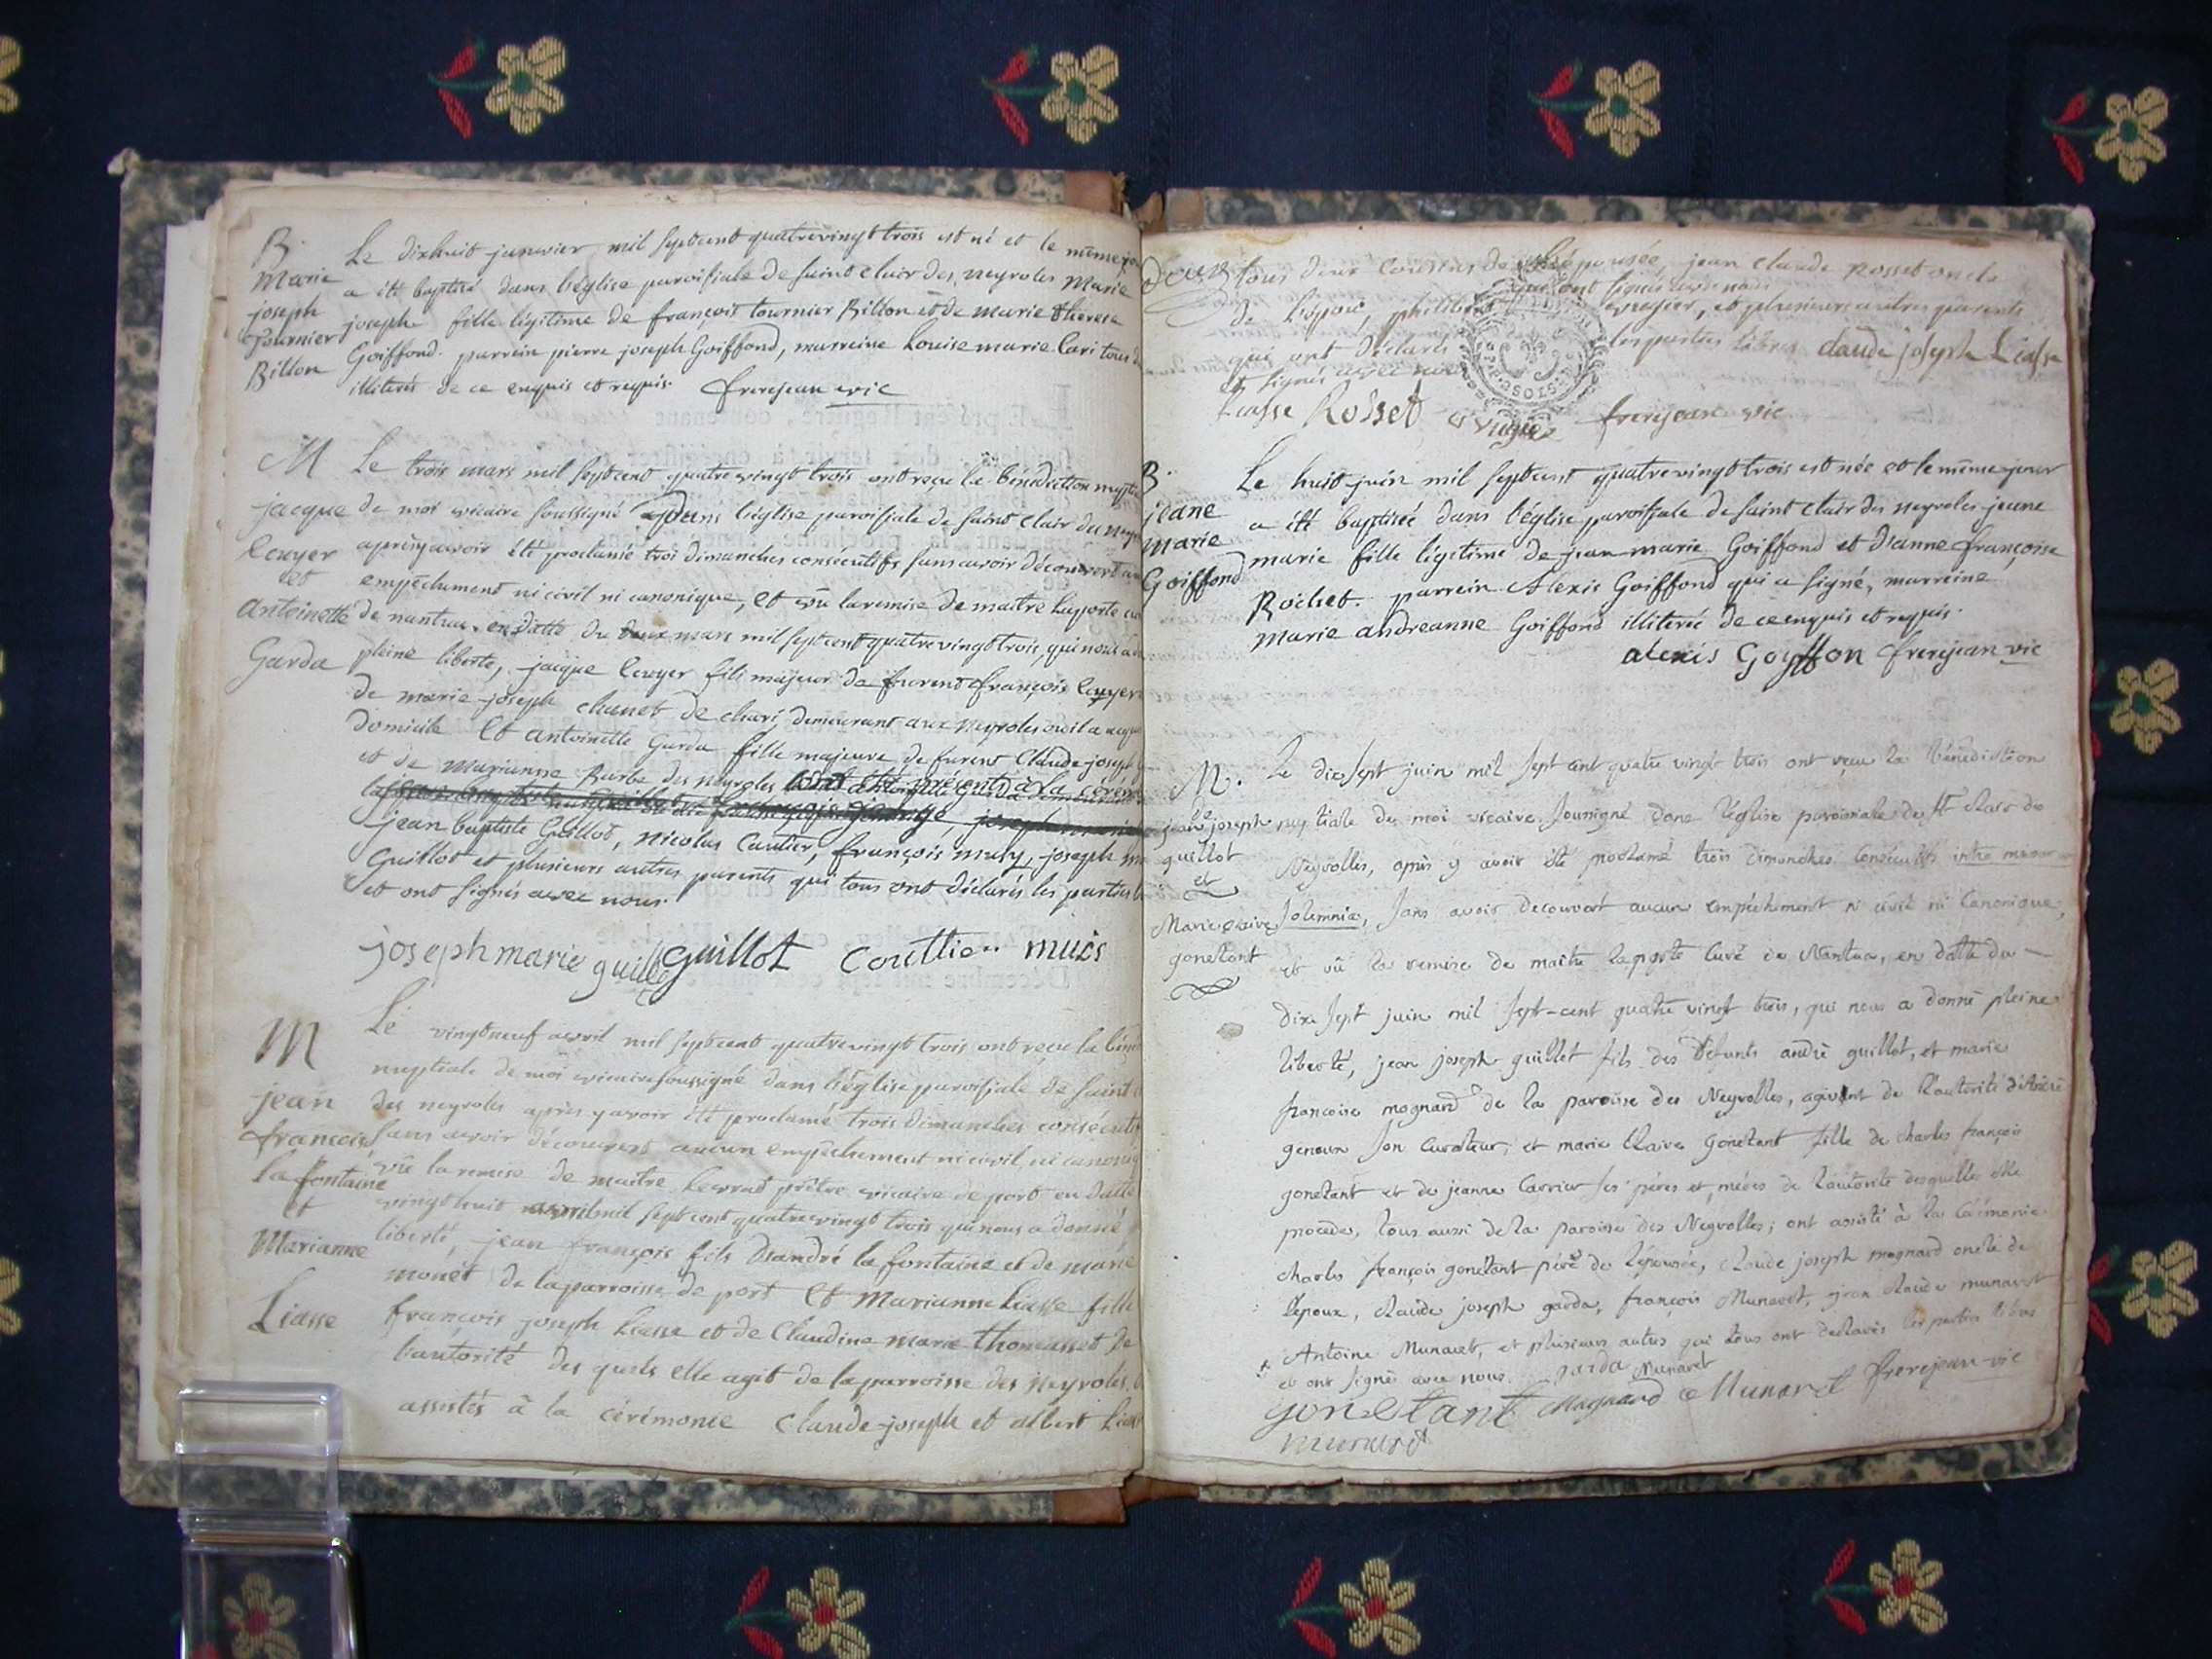 B.
Marie
joseph
tournier
Billon
Le dixhuit janvier mil septcent quatrevingt trois est né et le même
a été baptisé dans l'église paroissiale de saint clair des neyroles Marie
joseph fille légitime de françois tournier Billon et de marie therese
Goiffond. parrein pierre joseph Goiffond, marreine Louise marie Cari tous
illiterés de ce enquis et requis. frerejean vic
M
jacque
lcuyer
et
antoinette
Garda
Le trois mars mil septcent quatrevingt trois ont reçu la bénédiction
de moi vicaire soussigné dans l'église paroissiale de saint clair des
après y avoir été proclamé troi dimanches consécutifs sans avoir découvert
empêchement ni civil ni canonique, et vû la remise de maitre laporte
de nantua, en datte du deux mars mil septcent quatrevingt trois, qui nous a
pleine liberte, jacque lcuyer fils majeur de furent françois lcuyer
de marie joseph chanet de chari, demeurant aux Neyroles ou il a
domicile et antoinette Garda fille majeure de furent Claude joseph
et de marianne Burbe des neyroles ont été présents à la
jean baptiste Guillot, nicolas Cautier, françois mury, joseph
Guillot et plusieurs autres parents qui tous ont déclarés les parties
et ont signés avec nous.
joseph marie guillot guillot Couttier
M
jean
françois
la fontaine
et
Marianne
Liasse
Le vingtneuf avril mil septcent quatrevingt trois ont reçu la
nuptiale de moi vicaire soussigné dans l'église paroissiale de saint
des neyroles après y avoir été proclamé trois dimanches
sans avoir découvert aucun empêchement ni civil, ni
vû la remise de maitre prêtre vicaire de port en datte
vingthuit avril mil septcent quatrevingt trois qui nous a donné
liberté, jean françois fils d'andré la fontaine et de marie
monet de la parroisse de port et Marianne Liasse fille
françois joseph Liasse et de Claudine marie thomasset de
l'autorité des quels elle agit de la parroisse des neyroles,
assistés à la cérémonie Claude joseph et albert
deux tous deux cousins de l'épousée, jean claude rosset oncle
de l'époux, philibert et plusieurs autres parents
qui ont déclaré les parties libres claude joseph Liasse
et signés avec nous
Liasse Rosset frerejean vic
B.
jeane
Marie
Goiffond
Le huit juin mil septcent quatrevingt trois est née et le même jour
a été baptisée dans l'église paroissiale de saint clair des neyroles jeane
marie fille légitime de jean marie Goiffond et d'anne françoise
Rochet. parrein Alexis Goiffond qui a signé, marreine
marie andreanne Goiffond illiterée de ce enquis et requis.
alexis Goyffon frerejean vic
M.
jean joseph
guillot
et
Marie claire
gonetant
Le dix sept juin mil sept cent quatre vingt trois ont reçu la Bénédiction
nuptiale de moi vicaire soussigné dans l'église paroissiale de St clair des
Neyrolles, après y avoir été proclamé trois dimanches consécutifs intra
solemnia, sans avoir découvert aucun empêchement ni civil ni canonique,
et vû la remise de maitre laporte curé de Nantua, en datte du
dix sept juin mil sept-cent quatre vingt trois, qui nous a donné pleine
liberté, jean joseph guillot fils des défunts andré guillot, et marie
francoise mognard de la paroisse des Neyrolles, agissant de l'autorité
genoux son curateur, et marie Claire Gonetant fille de charles françois
gonetant et de jeanne Carrier ses pères et mères de l'autorité desquelles elle
procede, tous aussi de la paroisse des Neyrolles; ont assisté à la cérémonie
charles françois gonetant père de l'épousée, claude joseph mognard oncle de
l'epoux, claude joseph garda, françois Munaret, jean claude munaret
Antoine Munaret, et plusieurs autres qui tous ont declarés les parties libres
et ont signé avec nous. garda Munaret
gonetant Mognard Munaret frerejean vic
munaret